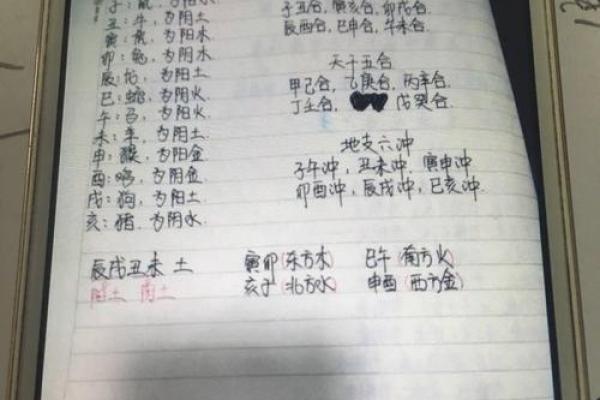 子：鼠，为阳水
丑：牛，为阴土
寅：虎，为阳木
卯：兔，为阴木
辰：龙，为阳土
巳：蛇，为阴火
午：马，为阳火
未：羊，为阴土
申：猴，为阳金
酉：鸡，为阴金
戌：狗，为阳土
亥：猪，为阴水
子丑合，寅亥合，卯戌合
辰酉合，巳申合，午未合
天干五合
甲己合，乙庚合，丙辛合
丁壬合，戊癸合
地支六冲
子午冲，丑未冲，寅申冲
卯酉冲，辰戌冲，巳亥冲
辰戌丑未 土 寅卯(东方木) 巳午(南方火)
土 土 亥子(北方水) 申酉(西方金)